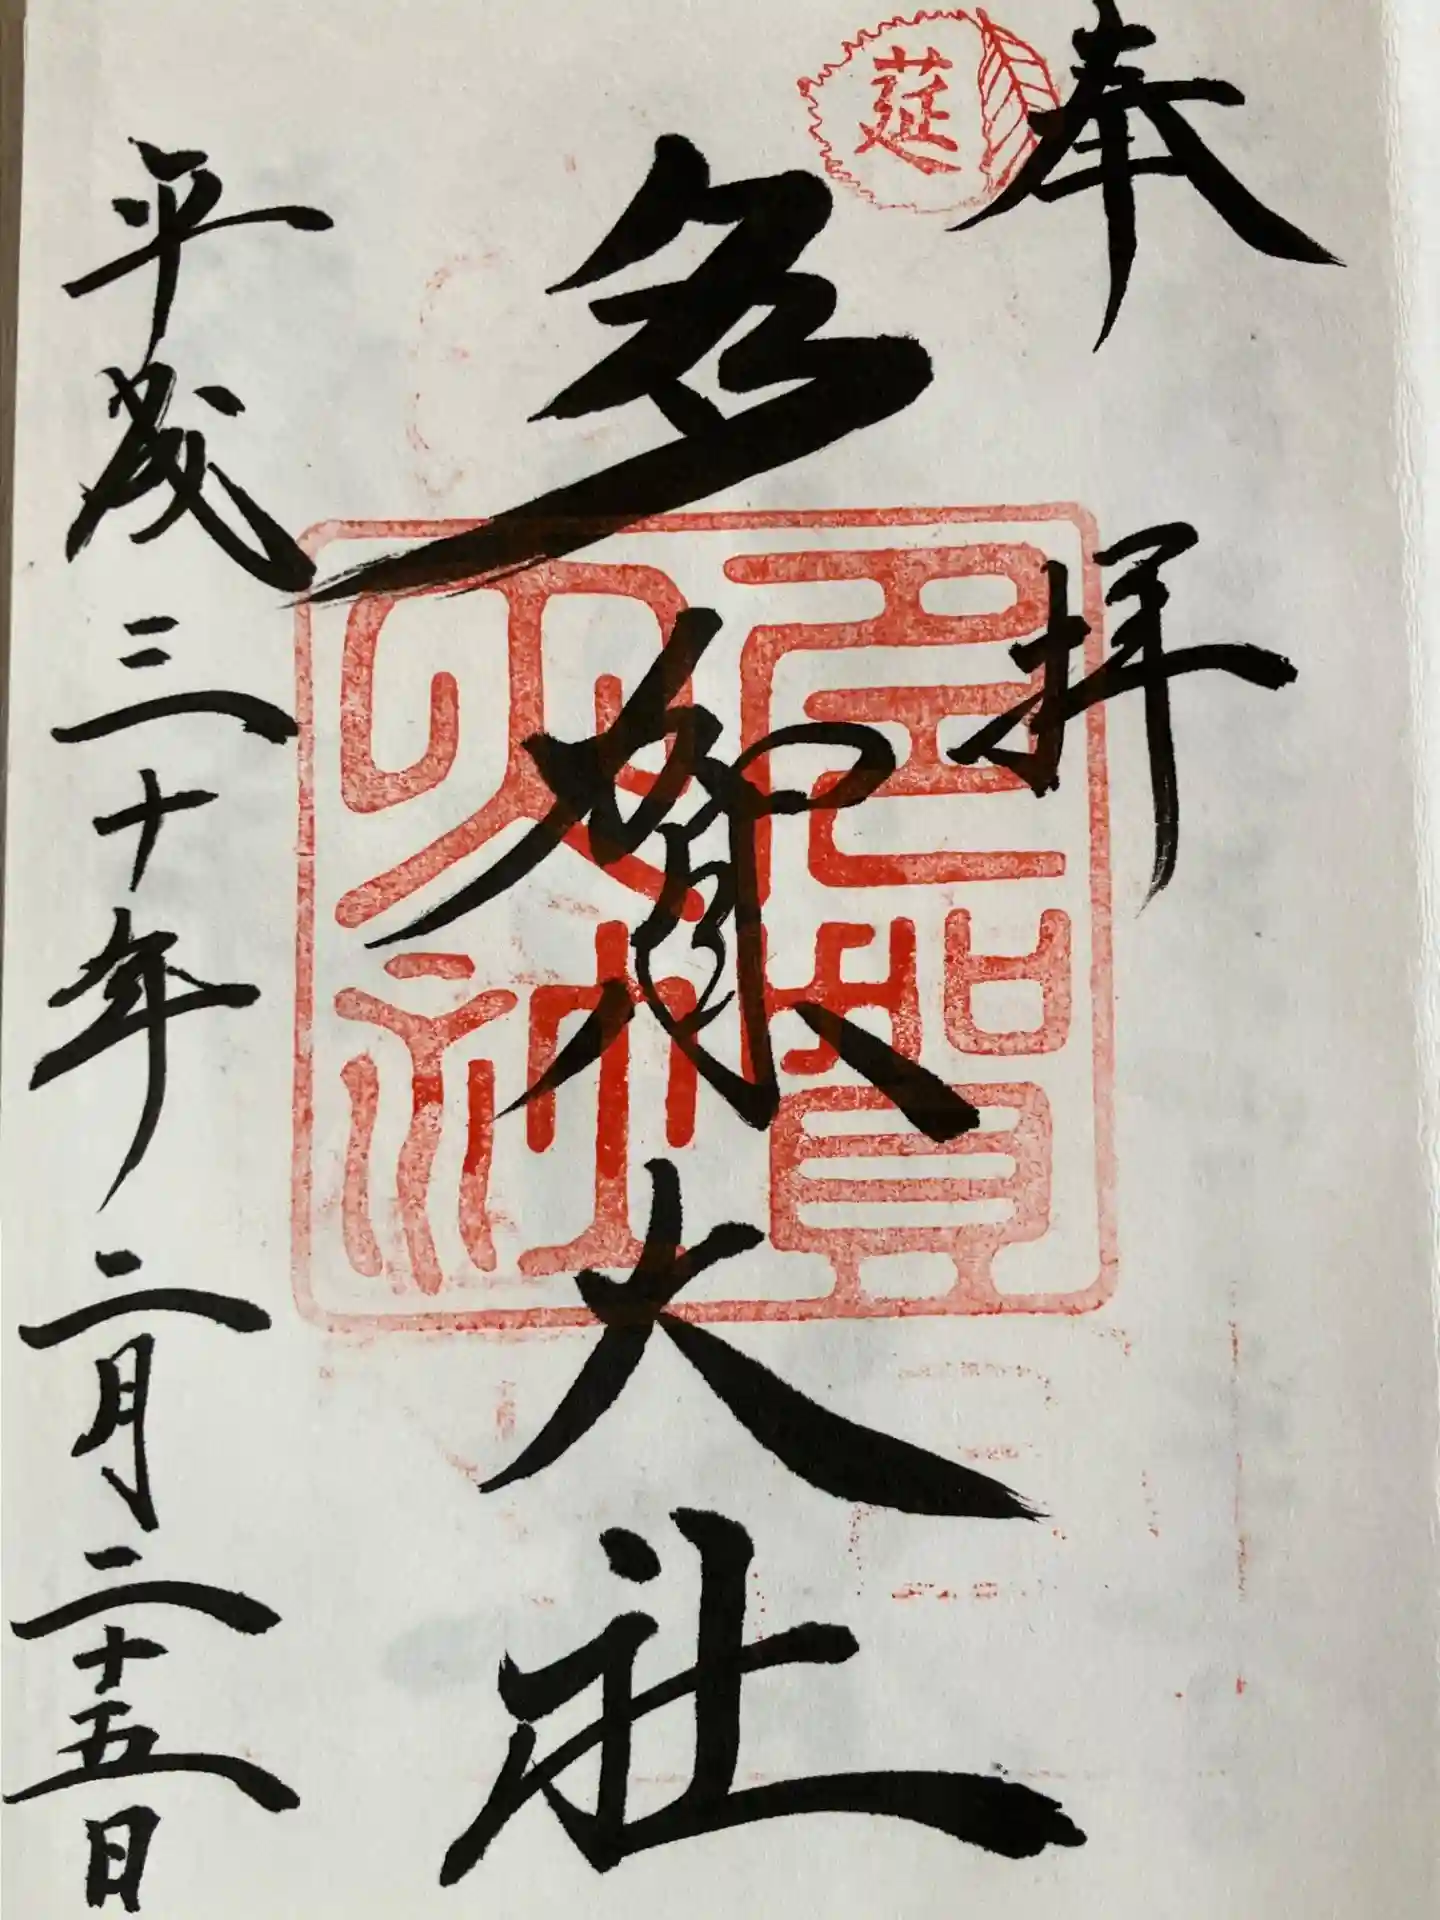 奉拝
莚
多賀大社
平成三十年二月二十五日